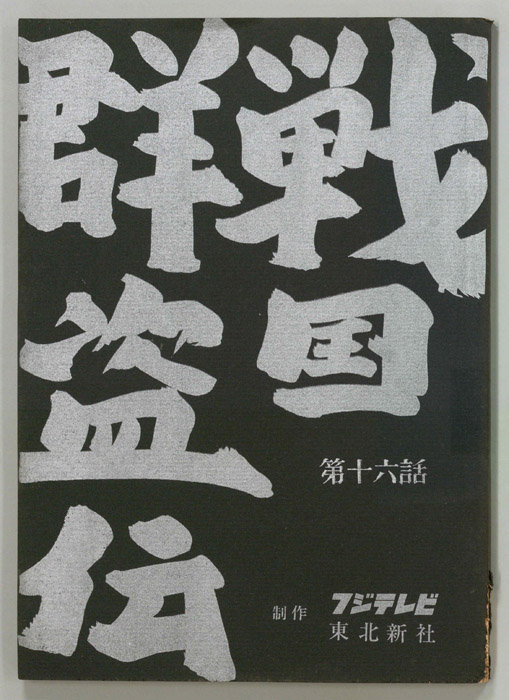 戦国
群盗伝
第十六話
制作
フジテレビ
東北新社